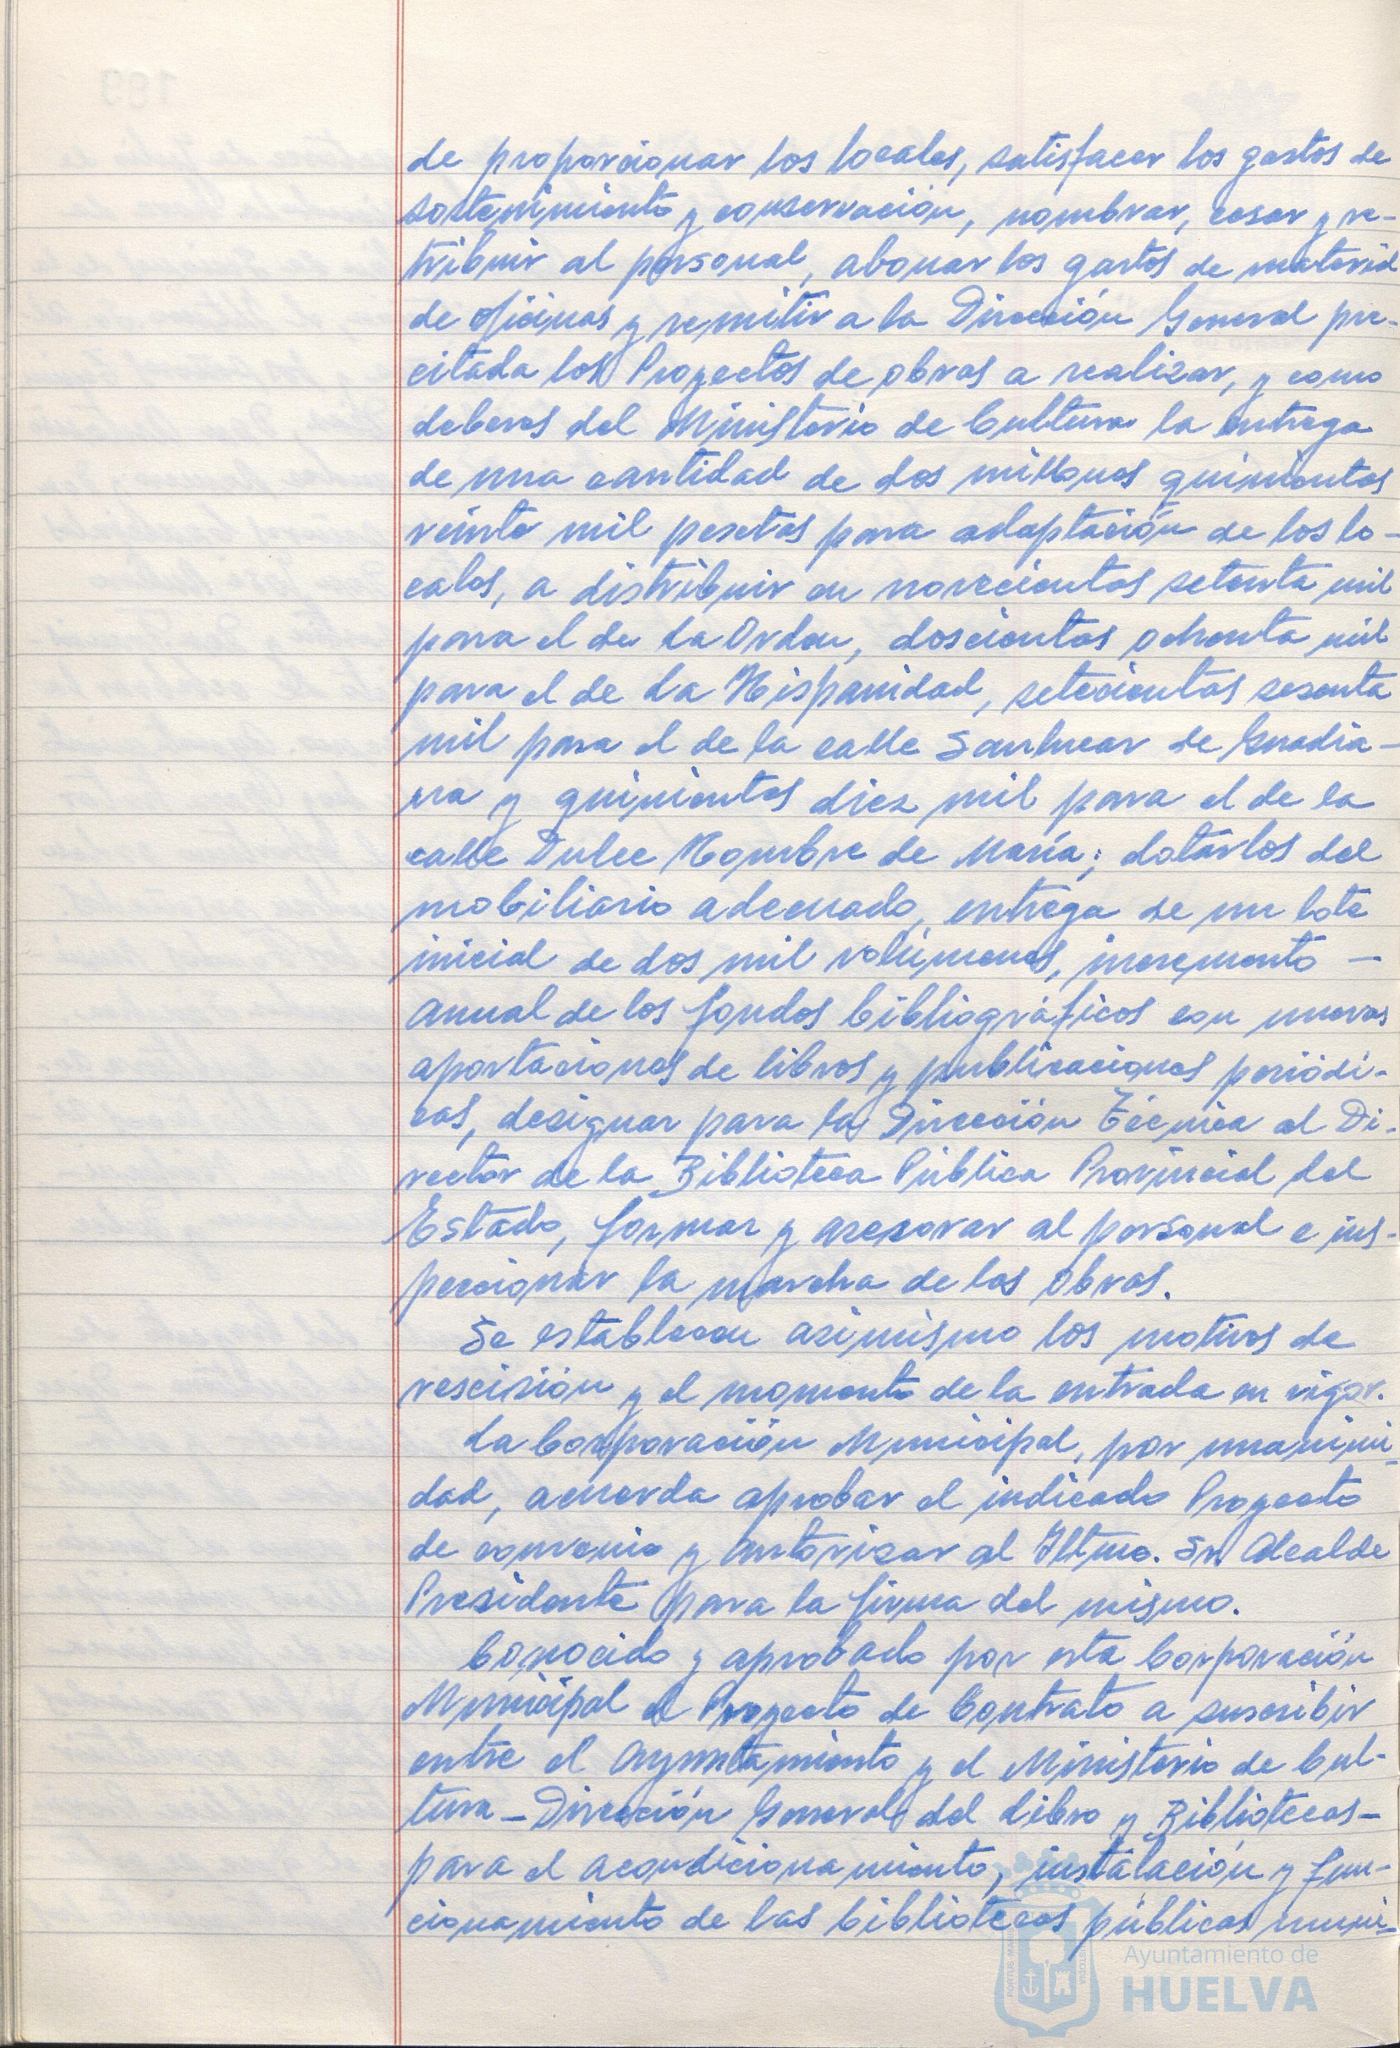 de proporcionar los locales, satisfacer los gastos de
sostenimiento y conservación, nombrar, cesar y re-
tribuir al personal, abonar los gastos de material
de oficinas y remitir a la Dirección General pre-
citada los Proyectos de obras a realizar, y como
deberes del Ministerio de Cultura la entrega
de una cantidad de dos millones quinientos
veinte mil pesetas para adaptación de los lo-
cales, a distribuir en novecientas setenta mil
para el de La Orden, doscientas ochenta mil
para el de La Hispanidad, setecientas sesenta
mil para el de la calle Sanlucar de Guadia-
na y quinientas diez mil para el de la
calle Dulce Nombre de María; dotarlos del
mobiliario adecuado, entrega de un lote
inicial de dos mil volúmenes, incremento —
anual de los fondos bibliográficos con nuevas
aportaciones de libros y publicaciones periódi-
cas, designar para la Dirección Técnica al Di-
rector de la Biblioteca Pública Provincial del
Estado, formar y asesorar al personal e ins-
peccionar la marcha de las obras.
Se establecen asimismo los motivos de
rescisión y el momento de la entrada en vigor.
La Corporación Municipal, por unanimi-
dad, acuerda aprobar el indicado Proyecto
de convenio y autorizar al Iltmo. Sr. Alcalde
Presidente para la firma del mismo.
Conocido y aprobado por esta Corporación
Municipal el Proyecto de Contrato a suscribir
entre el Ayuntamiento y el Ministerio de Cul-
tura - Dirección General del Libro y Bibliotecas -
para el acondicionamiento, instalación y fun-
cionamiento de las bibliotecas públicas muni-
Ayuntamiento de
HUELVA